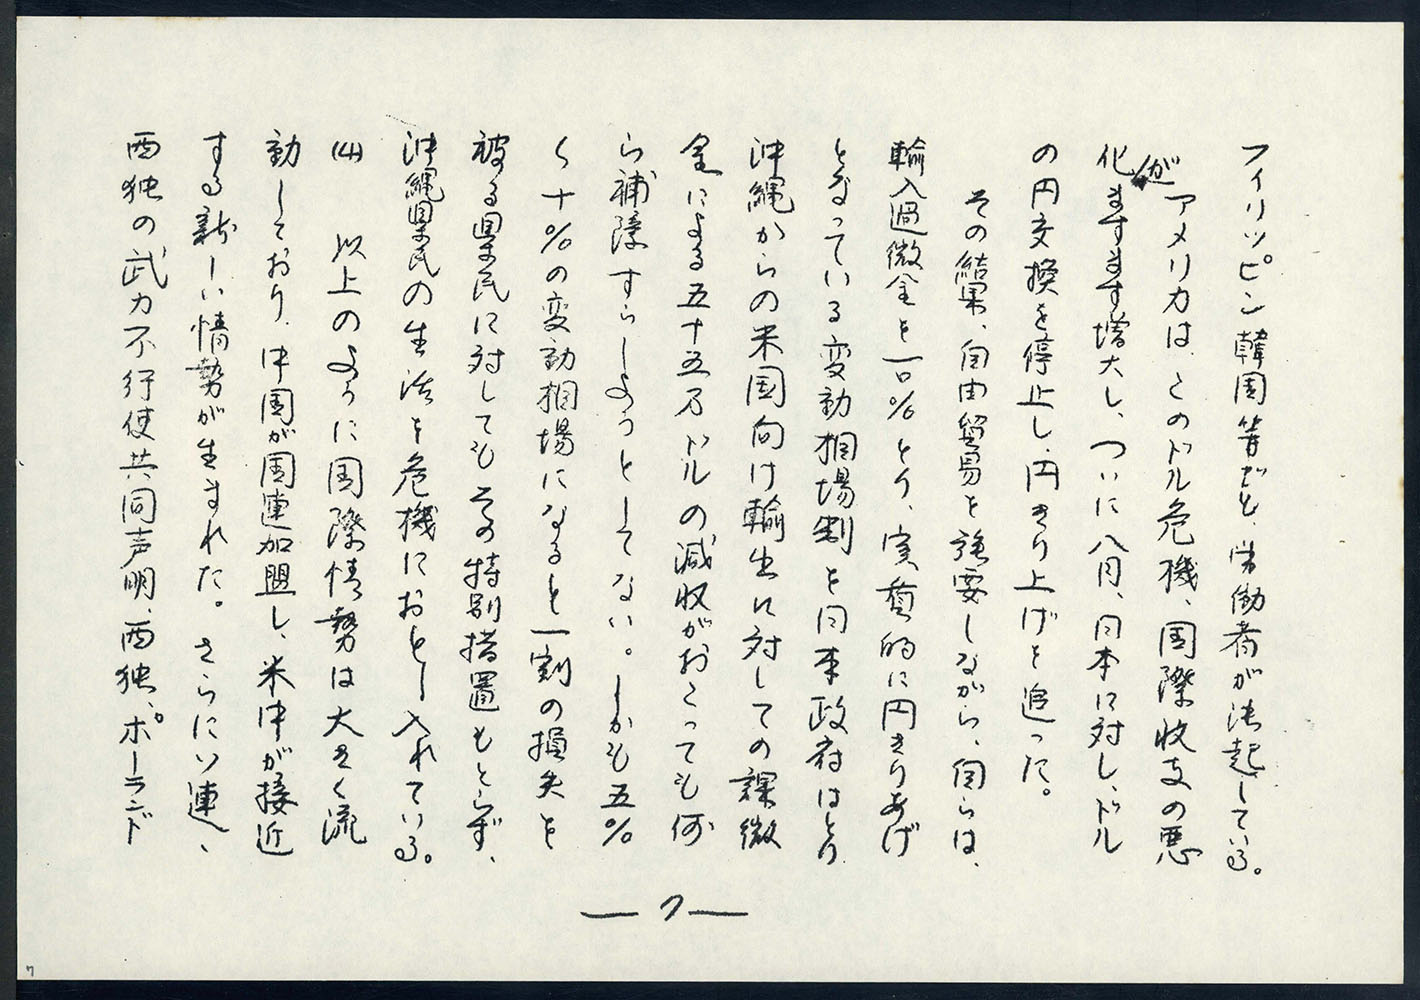 フィリッピン韓国等だと、労働者が決起している。
アメリカは、このドル危機、国際收支の悪
化がますます増大し、ついに八月、日本に対し、ドル
の円交換を停止し、円きり上げを追った。
その結果、自由貿易を強要しながら、自らは、
輸入過微金を一〇%とり、実質的に円きりあげ
となっている変動相場制を日本政府はとり
沖縄からの米国向け輸出に対しての課微
金による五十五万ドルの減收がおこっても何
ら補障すらしようとしてない。しかも五%
く十%の変動相場になると一割の損失を
被る県民に対してもその特別措置もとらず、
沖縄県民の生活を危機におとし入れている。
(4) 以上のように国際情勢は大きく流
動しており、中国が国連加盟し、米中が接近
する新しい情勢が生まれた。さらにソ連、
西独の武力不行使共同声明、西独、ポーランド
—7—
7